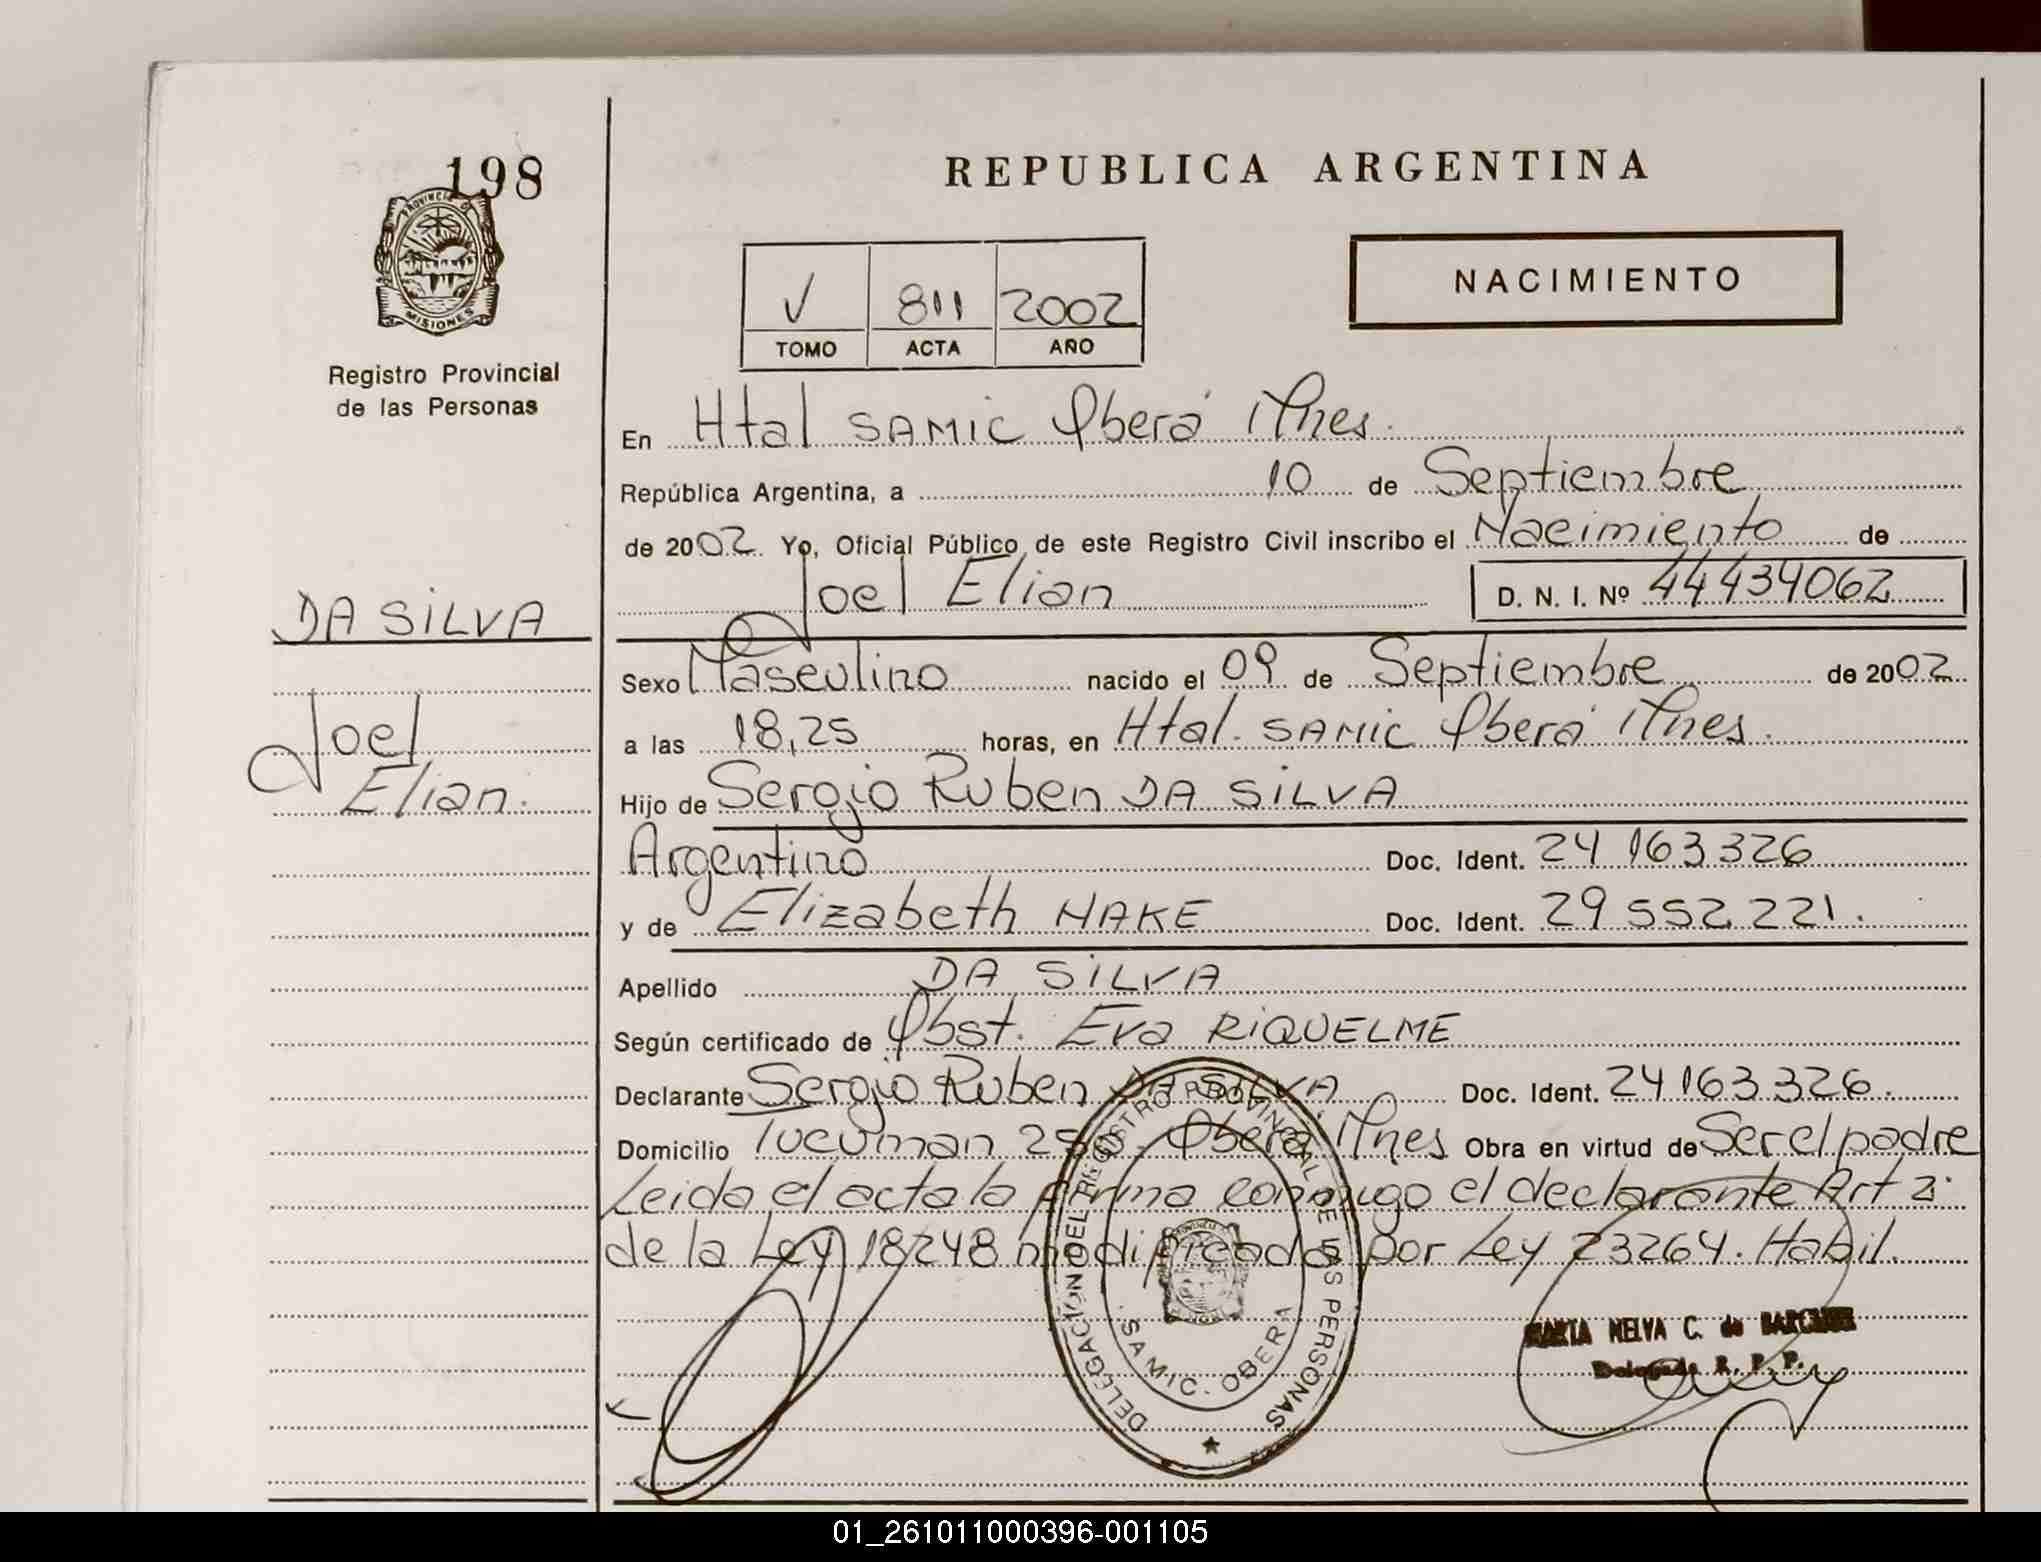 198
PROVINCIA DE
MISIONES
Registro Provincial
de las Personas
REPUBLICA ARGENTINA
NACIMIENTO
V 811 2002
TOMO ACTA AÑO
En Htal SAMIC Oberá Mnes.
República Argentina, a 10 de Septiembre
de 2002. Yo, Oficial Público de este Registro Civil inscribo el Nacimiento de
Joel Elian D. N. I. Nº 44434062
DA SILVA
Joel
Elian.
Sexo Masculino nacido el 09 de Septiembre de 2002
a las 18,25 horas, en Htal. SAMIC Oberá Mnes.
Hijo de Sergio Ruben DA SILVA
Argentino Doc. Ident. 24 163 326
y de Elizabeth HAKE Doc. Ident. 29 552 221.
Apellido DA SILVA
Según certificado de Obst. Eva RIQUELME
Declarante Sergio Ruben DA SILVA Doc. Ident. 24 163 326.
Domicilio Tucuman Oberá, Mnes Obra en virtud de Ser el padre
Leida el acta la firma conmigo el declarante Art 2:
de la Ley 18248 modificada por Ley 23264. Habil.
DELEGACION DEL REGISTRO PROVINCIAL DE LAS PERSONAS
SAMIC. OBERA
MARTA NELVA C. de
Delegada R. P. P.
01_261011000396-001105